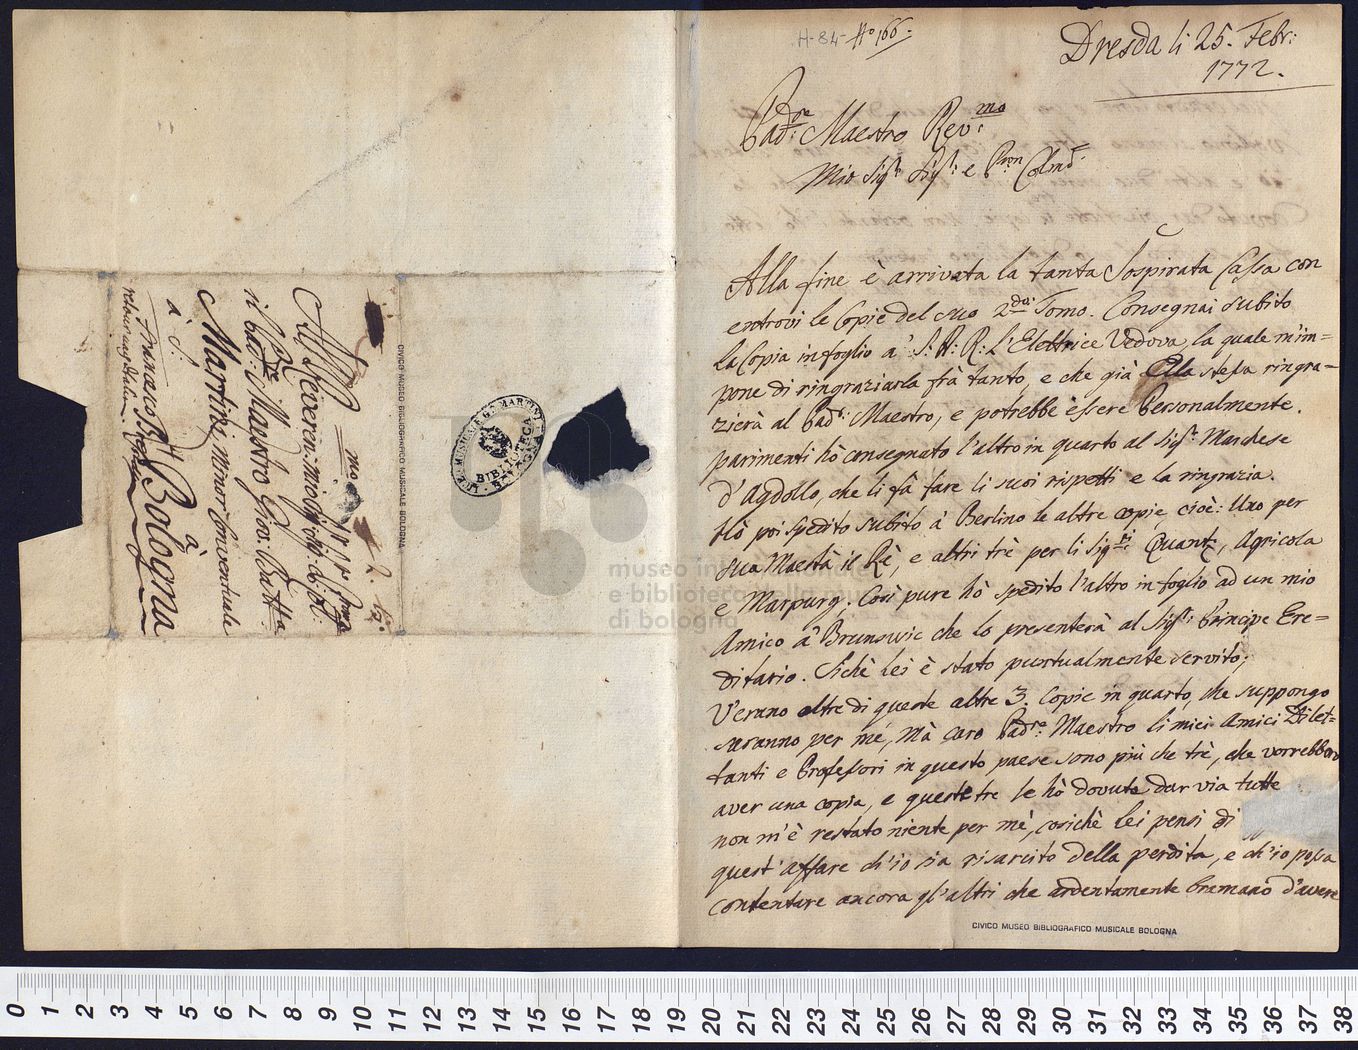 H-84- No 166.
Dresda li 25. Febr:
1772.
Padre: Maestro Rev:mo
Mio Sigr: Sigr: e Pron Colmo
Alla fine è arrivata la tanta Sospirata Cassa con
entrovi le Copie del suo 2do: Tomo. Consegnai subito
la Copia in foglio a' S: A: R: L'Elettrice Vedova, la quale m'im=
pone di ringraziarla frà tanto, e che già Ella stessa ringra=
zierà al Pad: Maestro, e potrebbe èssere Personalmente.
parimenti hò consegnato l'altro in quarto al Sigr: Marchese
d'Agdollo, che li fà fare li suoi rispetti e la ringrazia.
Hò poi spedito subito à Berlino le altre copie, cioè: Uno per
sua Maestà il Rè, e altri trè per li Sigri: Quantz, Agricola
e Marpurg. Così pure hò spedito l'altro in foglio ad un mio
Amico a' Brunswic che lo presenterà al Sigr: Principe Ere=
ditario. Sichè Lei è stato puntualmente servito;
V'erano oltre di queste altre 3. Copie in quarto, che suppongo
saranno per mé, Mà caro Padre: Maestro li miei Amici Dilet=
tanti e Professori in questo paese sono più che trè, che vorrebbero
aver una copia, e queste tre le hò dovute dar via tutte
non m'è restato niente per mè, cosichè Lei pensi di
quest'affare ch'io sia risarcito della perdita, e ch'io possa
contentare ancora gl'altri che ardentamente bramano d'avere
CIVICO MUSEO BIBLIOGRAFICO MUSICALE BOLOGNA
All
mo
il Pad:re Maestro Giov: Batta
Martini, Minor Conventuale
à S:
Francesco
à
Bologna
CIVICO MUSEO BIBLIOGRAFICO MUSICALE BOLOGNA
MARTINI
BIBLIOTECA
BOLOGNA
museo internazionale
e biblioteca della musica
di bologna
0 1 2 3 4 5 6 7 8 9 10 11 12 13 14 15 16 17 18 19 20 21 22 23 24 25 26 27 28 29 30 31 32 33 34 35 36 37 38